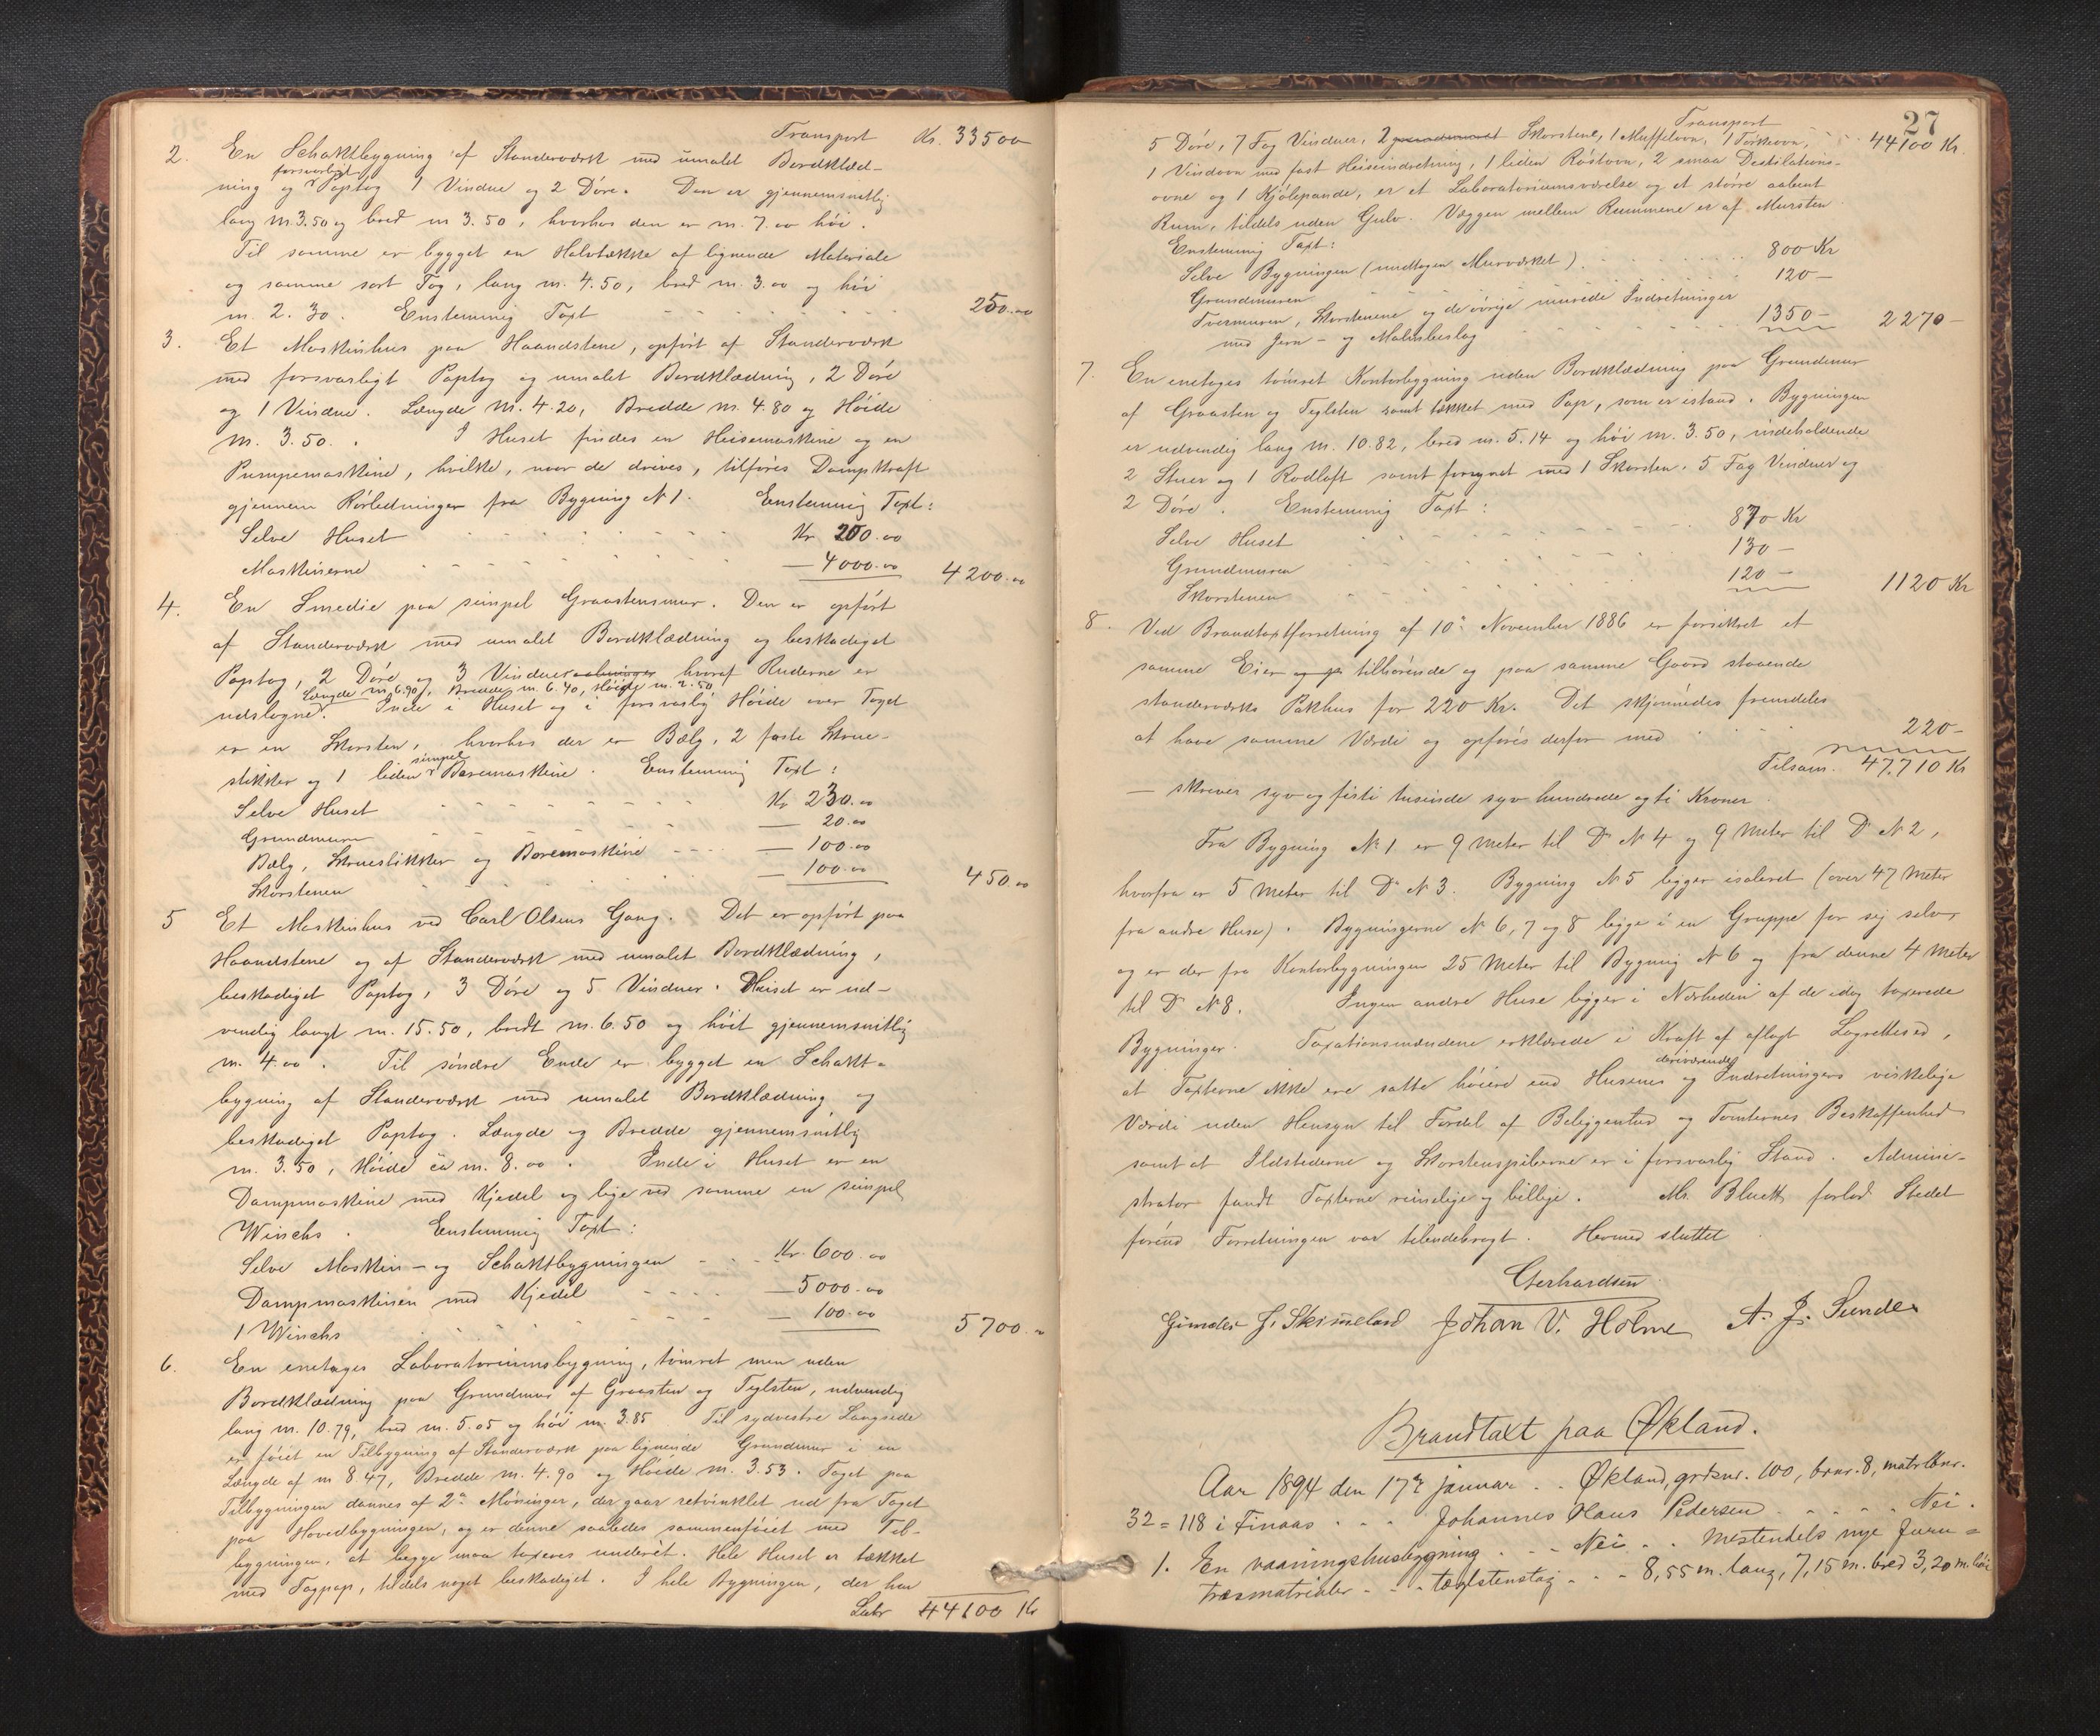 Transport Kr. 33500
2. En Schaktbygning af Standerværk med umalet Bordklæd-
ning og forsvarligt Paptag 1 Vindue og 2 Døre. Den er gjennemsnitlig
lang m. 3.50 og bred m 3.50, hvorhos den er m. 7.00 høi.
Til samme er bygget en Halvtække af lignende Materiale
og samme sort Tag, lang m. 4.50, bred m. 3.00 og høi
m. 2.30. Enstemmig Taxt 250.00
3. Et Maskinhus paa Haandstene, opført af Standerværk
med forsvarligt Paptag og umalet Bordklædning, 2 Døre
og 1 Vindue. Længde m. 4.20, Bredde m. 4.80 og Høide
m. 3.50. I Huset findes en Heisemaskine og en
Pumpemaskine, hvilke, naar de drives, tilføres Dampkraft
gjennem Rørledninger fra Bygning № 1. Enstemmig Taxt:
Selve Huset Kr 200.00
Maskinerne — 4000.00 4200.00
4. En Smedie paa simpel Graastensmur. Den er opført
af Standerværk med umalet Bordklædning og beskadiget
Paptag, 2 Døre og 3 Vinduer aabninger hvoraf Ruderne er
Længde m 6.90, Bredde m. 6.40, Høide m. 2.50
udslagne. Inde i Huset og i forsvarlig Høide over Taget
er en Skorsten, hvorhos der er Bælg, 2 faste Skrue-
stikker og 1 liden simpel Boremaskine. Enstemmig Taxt:
Selve Huset Kr 230.00
Grundmuren — 20.00
Bælg, Skruestikker og Boremaskine — 100.00
Skorstenen — 100.00 450.00
5 Et Maskinhus ved Carl Olsens Gang. Det er opført paa
Haandstene og af Standerværk med umalet Bordklædning,
beskadiget Paptag, 3 Døre og 5 Vinduer. Huset er ud-
vendig langt m. 15.50, bredt m. 6.50 og høit gjennemsnitlig
m. 4.00. Til søndre Ende er bygget en Schakt-
bygning af Standerværk med umalet Bordklædning og
beskadiget Paptag. Længde og Bredde gjennemsnitlig
m. 3.50, Høide ca m. 8.00. Inde i Huset er en
Dampmaskine med Kjedel og lige ved samme en simpel
Winchs. Enstemmig Taxt:
Selve Maskin- og Schaktbygningen Kr. 600.00
Dampmaskinen med Kjedel — 5000.00
1 Winchs — 100.00 5700.
6. En enetages Laboratoriumsbygning, tømret men uden
Bordklædning paa Grundmur af Graasten og Teglsten, udvendig
lang m. 10.79, bred m. 5.05 og høi m. 3.85 Til sydvestre Langside
er føiet en Tilbygning af Standerværk paa lignende Grundmur i en
Længde af m 8.47, Bredde m. 4.90 og Høide m. 3.53. Taget paa
Tilbygningen dannes af 2de Møninger, der gaar retvinklet ud fra Taget
paa Hovedbygningen, og er denne saaledes sammenføiet med Til-
bygningen, at begge maa taxeres underét. Hele Huset er tækket
med Tagpap, tildels noget beskadiget. I hele Bygningen, der har
Latr 44100 Kr
27
Transport
5 Døre, 7 Fag Vinduer, 2 Skorstene, 1 Muffelovn, 1 Tørkeovn, 44100 Kr.
1 Vindovn med fast Heiseindretning, 1 liden Røstovn, 2 smaa Destilations-
ovne og 1 Kjølepande, er et Laboratoriumsværelse og et større aabent
Rum, tildels uden Gulv. Væggen mellem Rummene er af Mursten
Enstemmig Taxt:
Selve Bygningen (undtagen Murværket) 800 Kr
Grundmuren 120 —
Tvermuren, Skorstenene og de øvrige murede Indretninger
med Jern- og Malmbeslag 1350 — 2270 —
7. En enetages tømret Kontorbygning uden Bordklædning paa Grundmur
af Graasten og Teglsten samt tækket med Pap, som er istand. Bygningen
er udvendig lang m. 10.82, bred m. 5.14 og høi m. 3.50, indeholdende
2 Stuer og 1 Rodloft samt forsynet med 1 Skorsten. 5 Fag Vinduer og
2 Døre. Enstemmig Taxt:
Selve Huset 870 Kr
Grundmuren 130 —
Skorstenen 120 — 1120 Kr
8. Ved Brandtaxtforretning af 10de November 1886 er forsikret et
samme Eier tilhørende og paa samme Gaard staaende
standerværks Pakhus for 220 Kr. Det skjønnedes fremdeles
at have samme Værdi og opføres derfor med 220 —
Tilsam. 47,710 Kr
— skriver syv og firti tusinde syv hundrede og ti Kroner
Fra Bygning № 1 er 9 Meter til Do № 4 og 9 Meter til Do № 2,
hvorfra er 5 Meter til Do № 3. Bygning № 5 ligger isoleret (over 47 Meter
fra andre Huse). Bygningerne № 6, 7 og 8 ligge i en Gruppe for sig selv,
og er der fra Kontorbygningen 25 Meter til Bygning № 6 og fra denne 4 Meter
til Do № 8. Ingen andre Huse ligger i Nærheden af de idag taxerede
Bygninger. Taxationsmændene erklærede i Kraft af aflagt Lagrettesed,
at Taxterne ikke ere satte høiere end Husenes og derværende Indretningers virkelige
Værdi uden Hensyn til Fordel af Beliggenhed og Tomternes Beskaffenhed
samt at Ildstederne og Skorstenspiberne er i forsvarlig Stand. Admini-
strator fandt Taxterne rimelige og billige. Mr. Bluett forlod Stedet
førend Forretningen var tilendebragt. Hermed sluttet
Gerhardsen
J. Skimeland Johan V. Holme A. J. Sunde
Brandtaxt paa Økland.
Aar 1894 den 17de januar . . Økland, grdsnr. 100, brnr. 8, matrlknr.
32 = 118 i Finaas . . . Johannes Hans Pedersen . . . . . Nei.
1. En vaaningshusbygning . . . Nei . . mestendels nye furu-
træsmatrialer . . . tæglstenstag . . . 8,55 m. lang, 7,15 m. bred 3,20 m. høi